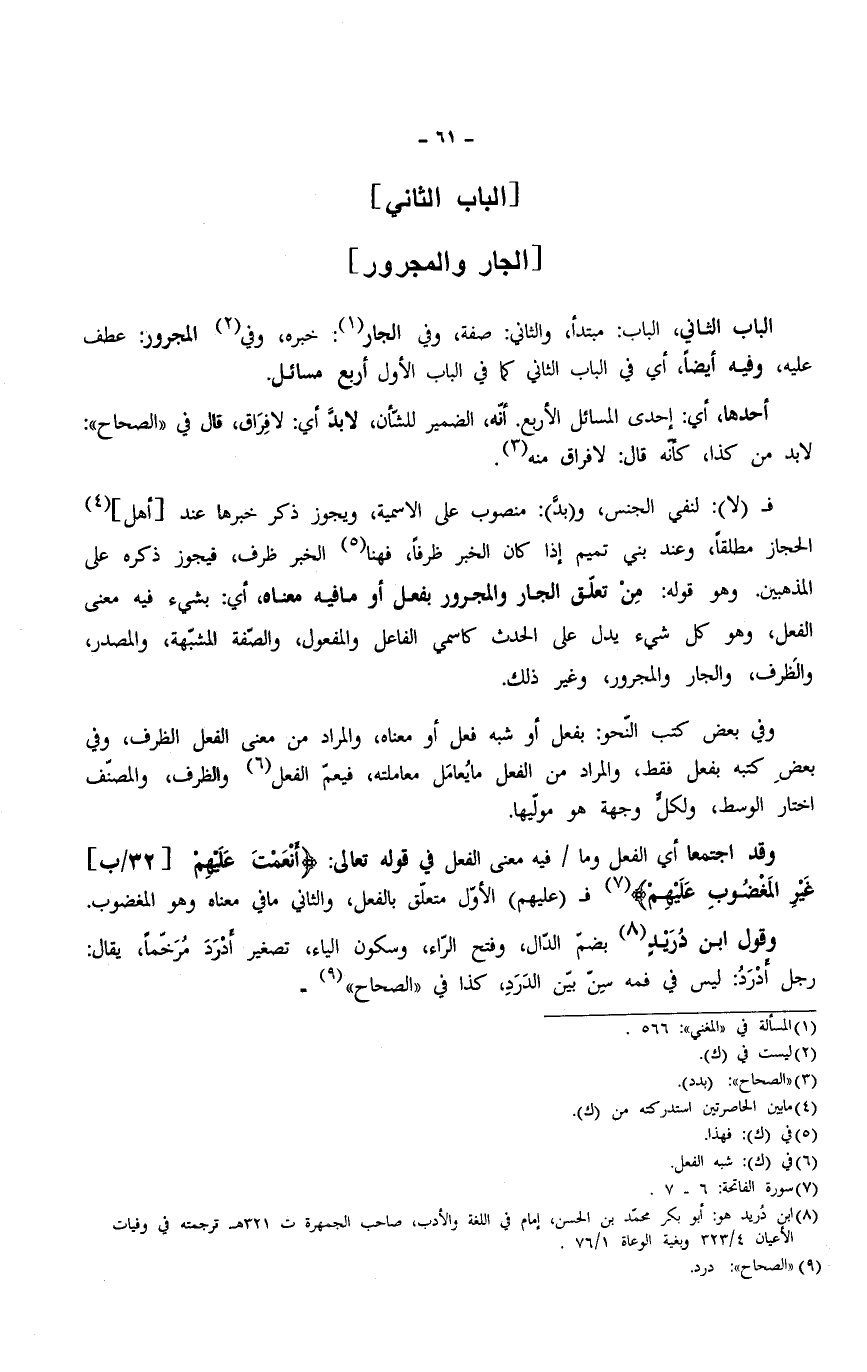 - ٦١ -
[الباب الثاني]
[الجار والمجرور]
الباب الثاني، الباب: مبتدأ، والثاني: صفة، وفي الجار(١): خبره، وفي(٢) المجرور: عطف
عليه، وفيه أيضاً، أي في الباب الثاني كما في الباب الأول أربع مسائل.
أحدها، أي: إحدى المسائل الأربع. أنّه، الضمير للشّأن، لابدَّ أي: لافِرَاق، قال في «الصحاح»:
لابد من كذا، كأنّه قال: لافراق منه(٣).
فـ (لا): لنفي الجنس، و(بدَّ): منصوب على الاسمية، ويجوز ذكر خبرها عند [أهل](٤)
الحجاز مطلقاً، وعند بني تميم إذا كان الخبر ظرفاً، فهنا(٥) الخبر ظرف، فيجوز ذكره على
المذهبين. وهو قوله: مِنْ تعلّق الجار والمجرور بفعل أو مافيه معناه، أي: بشيء فيه معنى
الفعل، وهو كل شيء يدل على الحدث كاسمي الفاعل والمفعول، والصّفة المشبّهة، والمصدر،
والظرف، والجار والمجرور، وغير ذلك.
وفي بعض كتب النّحو: بفعل أو شبه فعل أو معناه، والمراد من معنى الفعل الظرف، وفي
بعضِ كتبه بفعل فقط، والمراد من الفعل مايُعامَل معاملته، فيعمّ الفعل(٦) والظرف، والمصنّف
اختار الوسط، ولكلٍّ وجهة هو مولّيها.
وقد اجتمعا أي الفعل وما / فيه معنى الفعل في قوله تعالى: ﴿أَنْعَمْتَ عَلَيْهِمْ [٣٢/ب]
غَيْرِ المَغْضُوبِ عَلَيْهِمْ﴾(٧) فـ (عليهم) الأوّل متعلّق بالفعل، والثاني مافي معناه وهو المغضوب.
وقول ابن دُرَيْدٍ(٨) بضمّ الدّال، وفتح الرّاء، وسكون الياء، تصغير أَدْرَدَ مُرَخّماً، يقال:
رجل أَدْرَدُ: ليس في فمه سِنّ بيّن الدَرَدِ، كذا في «الصحاح»(٩) ـ
(١) المسألة في «المغني»: ٥٦٦ .
(٢) ليست في (ك).
(٣) «الصحاح»: (بدد).
(٤) مابين الحاصرتين استدركته من (ك).
(٥) في (ك): فهذا.
(٦) في (ك): شبه الفعل.
(٧) سورة الفاتحة: ٦ ـ ٧ .
(٨) ابن دُريد هو: أبو بكر محمّد بن الحسن، إمام في اللغة والأدب، صاحب الجمهرة ت ٣٢١هـ ترجمته في وفيات
الأعيان ٣٢٣/٤ وبغية الوعاة ٧٦/١ .
(٩) «الصحاح»: درد.